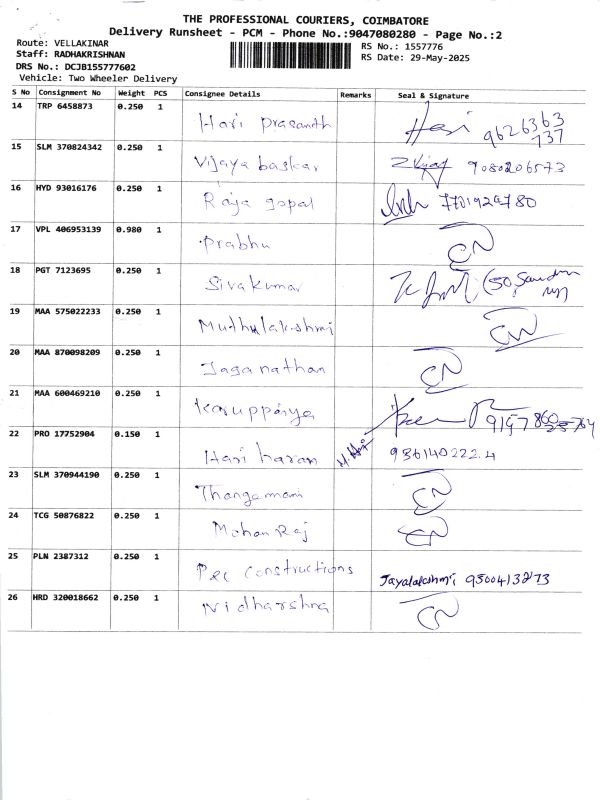 THE PROFESSIONAL COURIERS, COIMBATORE
Delivery Runsheet - PCM - Phone No.:9047080280 - Page No.:2
Route: VELLAKINAR
RS No.: 1557776
Staff: RADHAKRISHNAN
RS Date: 29-May-2025
DRS No.: DCJB155777602
Vehicle: Two Wheeler Delivery
S No Consignment No Weight PCS Consignee Details Remarks Seal & Signature
14 TRP 6458873 0.250 1 Hari Prasanth Hari 9626363
737
15 SLM 370824342 0.250 1 Vijaya baskar 9080206573
16 HYD 93016176 0.250 1 Raja gopal 7701929780
17 VPL 406953139 0.980 1 Prabhu CN
18 PGT 7123695 0.250 1 Siva kumar
19 MAA 575022233 0.250 1 Muthulakshmi CN
20 MAA 870098209 0.250 1 Jaganathan CN
21 MAA 600469210 0.250 1 Karuppaiya
22 PRO 17752904 0.150 1 Hari haran 9361402224
23 SLM 370944190 0.250 1 Thangamani CN
24 TCG 50876822 0.250 1 Mohan Raj CN
25 PLN 2387312 0.250 1 P&C Constructions Jayalakshmi 9500413273
26 HRD 320018662 0.250 1 Nidharshna CN